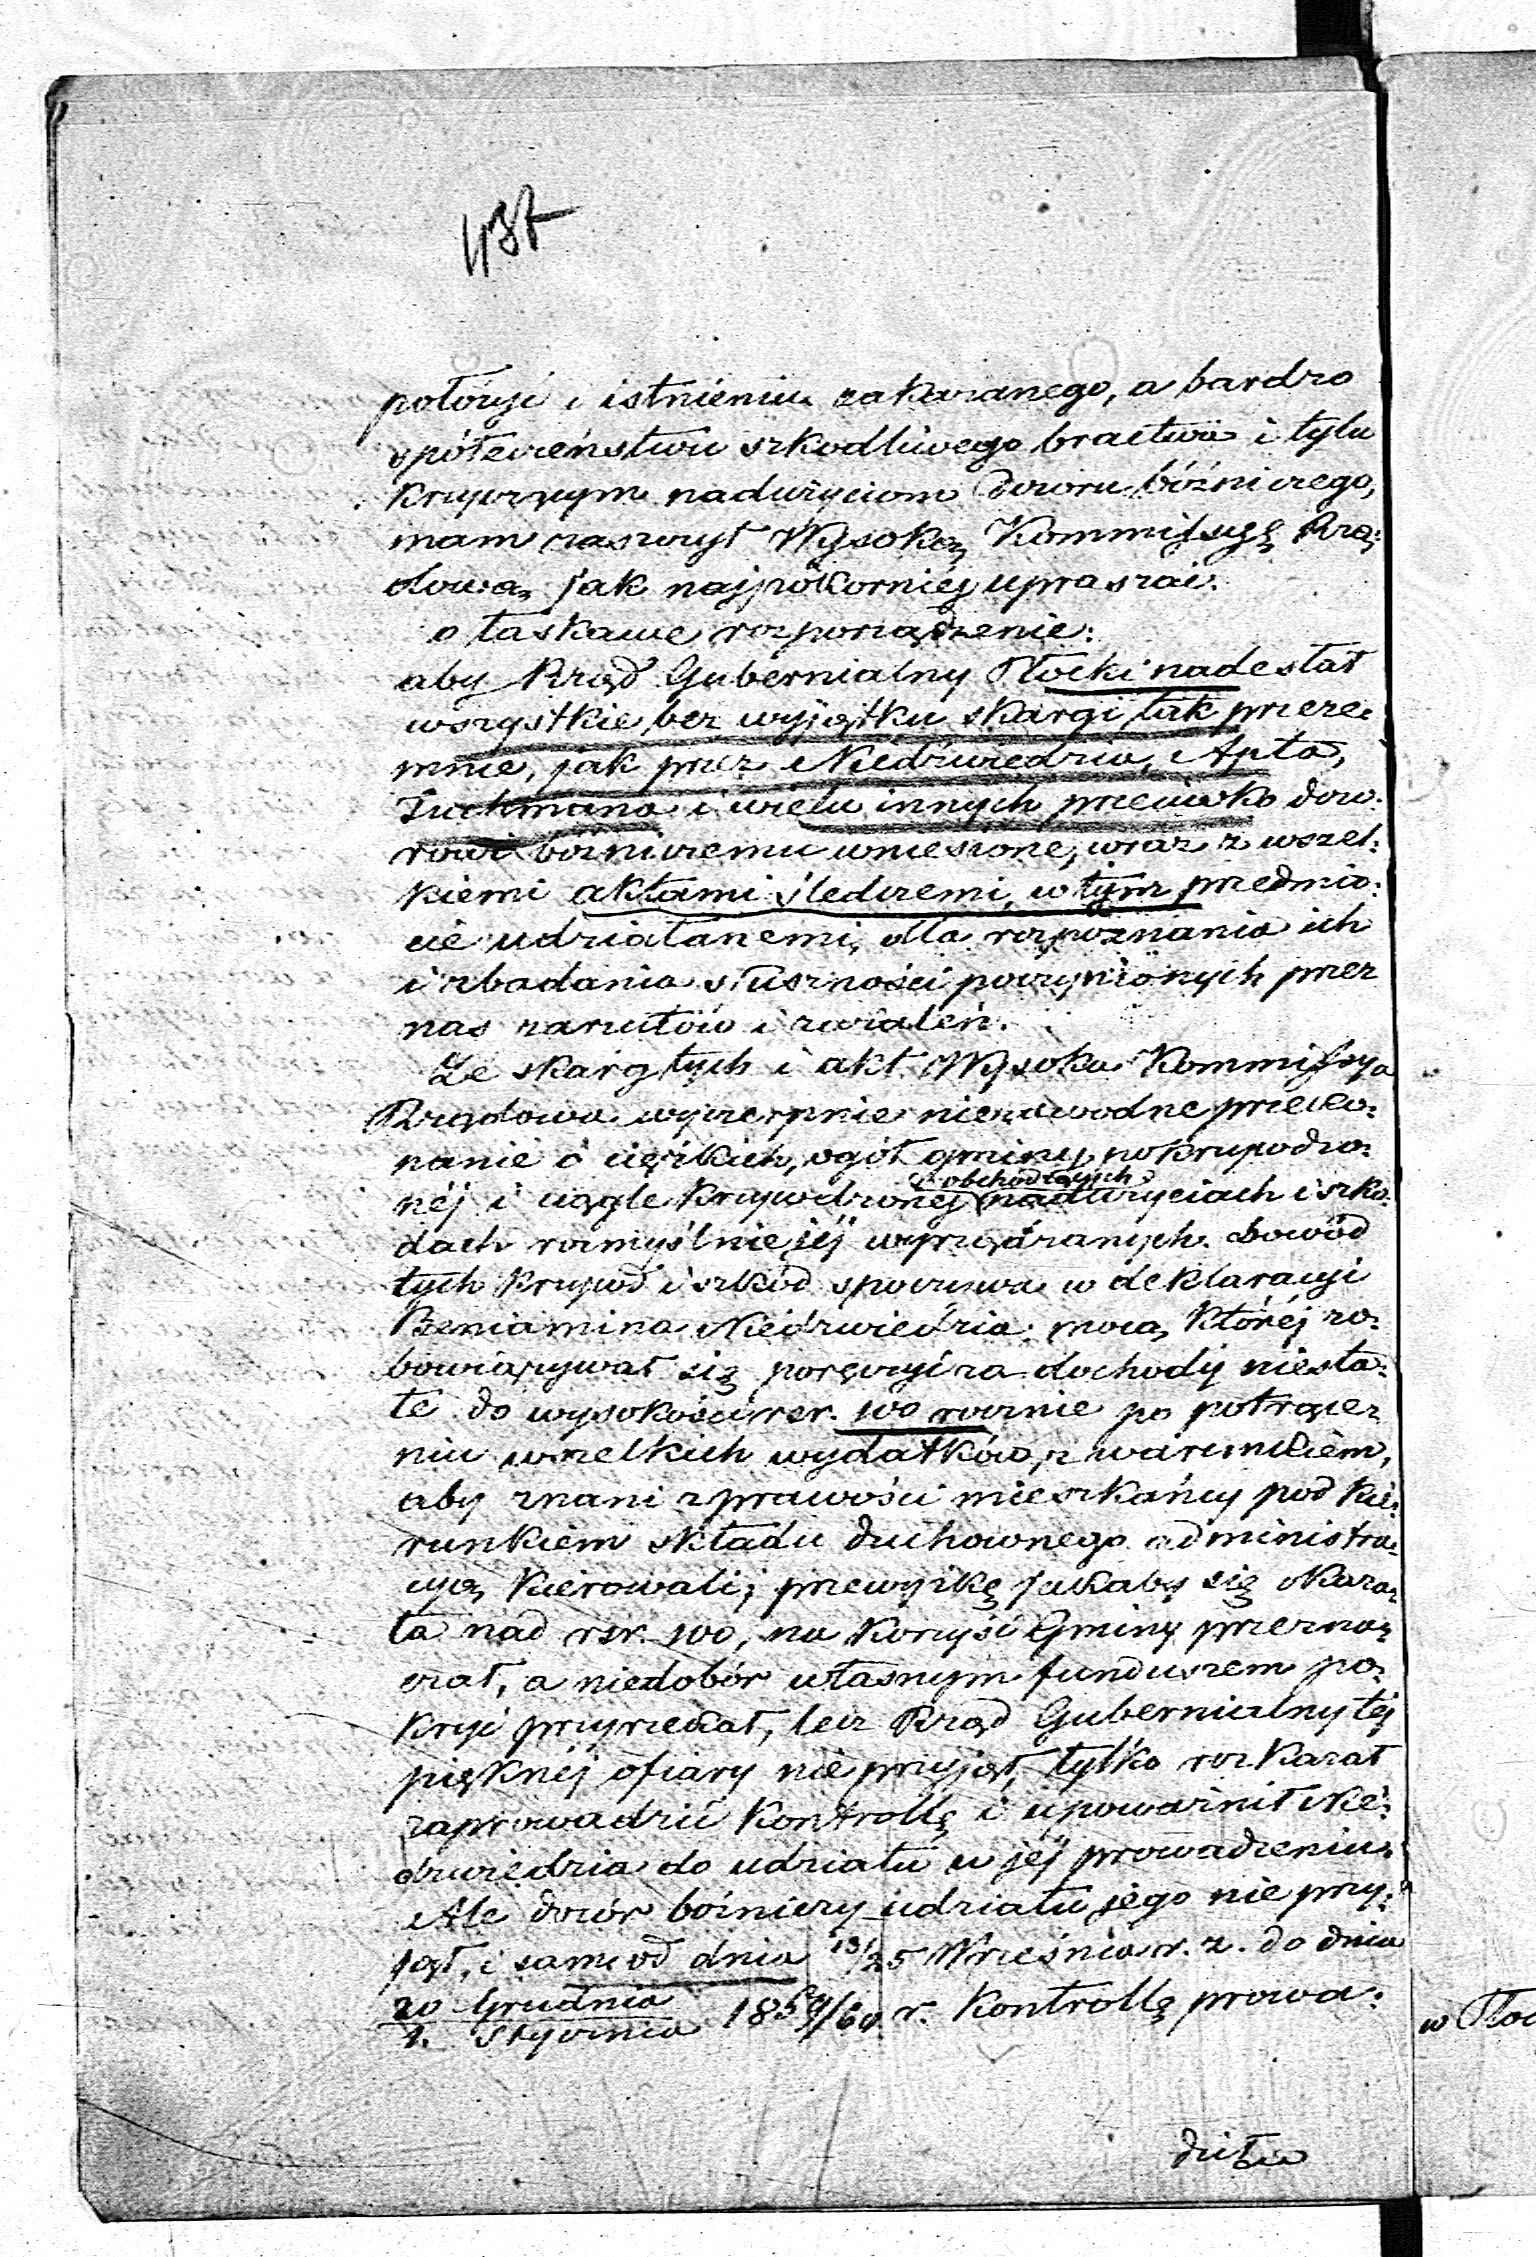 437
położyć i istnieniu zakazanego, a bardzo
spółeczeństwu szkodliwego bractwa i tylu
krzyczącym nadużyciom Dozoru bóźniczego,
mam zaszczyt Wysoką Kommissyę Rzą:
dową jak najpokorniej upraszać.
o łaskawe rozporządzenie:
aby Rząd Gubernialny Płocki nadesłał
wszystkie bez wyjątku skargi tak przeze:
mnie, jak przez Niedźwiedzia, Apta,
Zuckmana i wielu innych przeciwko doz:
rowi bóźniczemu wniesione, wraz z wszel:
kiemi aktami śledczemi, w tym przedmio:
cie udziałanemi, dla rozpoznania ich
i zbadania słuszności poczynionych przez
nas zarzutów i zażaleń.
Ze skarg tych i akt Wysoka Kommissya
Rządowa wyczerpnie niezawodne przeko:
nanie o ciężkich, ogół gminy pokrzywdzo:
néj i ciągle krzywdzonej obchodzących
nadużyciach i szko:
dach rozmyślnie jéj wyrządzanych. Dowód
tych krzywd i szkód spoczywa w deklaracyi
Beniamina Niedźwiedzia: mocą któréj zo:
bowiązywał się poręczyć za dochody niesta:
łe do wysokości rsr. 100 rocznie po potrące:
niu wszelkich wydatków, z warunkiem,
aby znani z prawości mieszkańcy pod kie:
runkiem składu duchownego administra:
cyą kierowali; przewyżkę jakaby się okaza:
ła nad rsr. 100, na korzyść Gminy przezna:
czał, a niedobór własnym funduszem po:
kryć przyrzekał, lecz Rząd Gubernialny téj
pięknéj ofiary nie przyjął, tylko rozkazał
zaprowadzić kontrollę i upoważnił Nie:
dźwiedzia do udziału w jéj prowadzeniu.
Ale dozór bóźniczy udziału jego nie przy:
jął, i sam od dnia 13/25 Września r. z. do dnia
20 Grudnia
1. Stycznia 1859/60 r. kontrollę prowa:
dził a
w Płoc